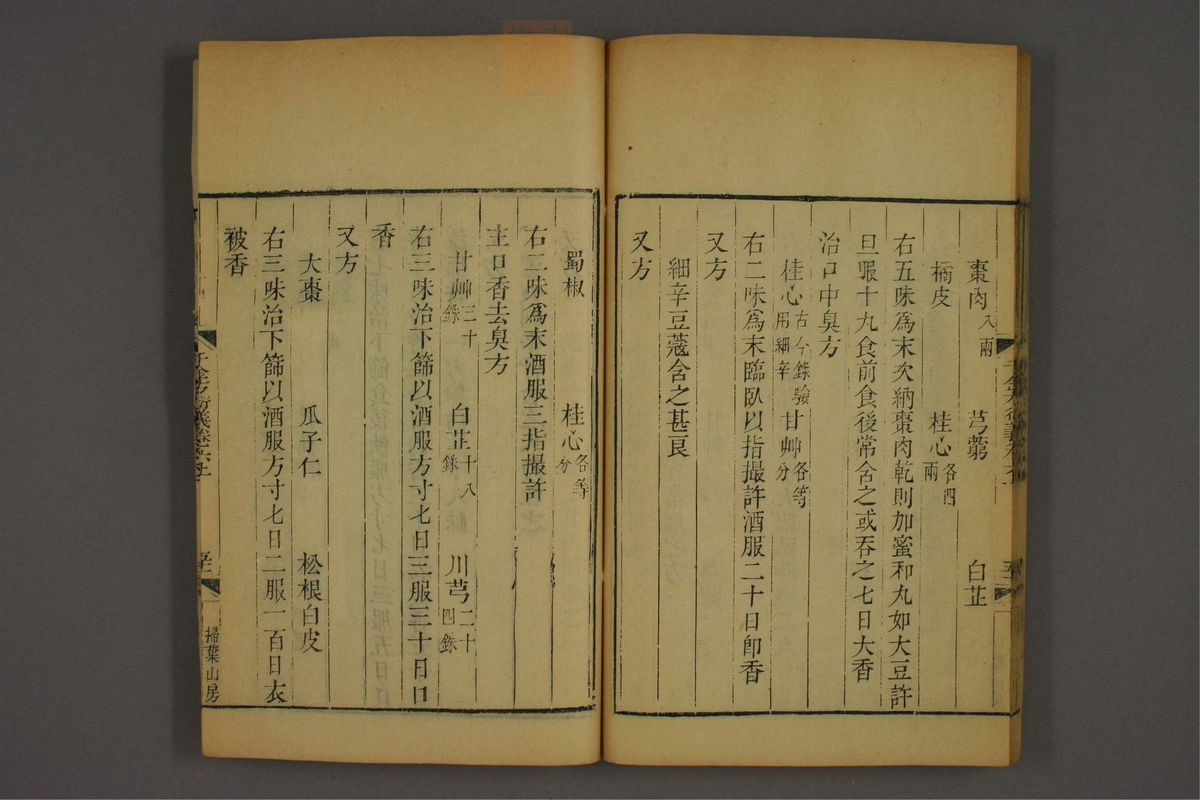 棗肉八兩　芎藭　白芷
橘皮　桂心各四兩
右五味爲末次納棗肉乾則加蜜和丸如大豆許
旦服十九食前食後常含之或吞之七日大香
治口中臭方
桂心古今錄驗用細辛　甘艸各等分
右二味爲末臨臥以指撮許酒服二十日卽香
又方
細辛豆蔻含之甚良
又方
蜀椒　桂心各等分
右二味爲末酒服三指撮許
主口香去臭方
甘艸三十銖　白芷十八銖　川芎二十四銖
右三味治下篩以酒服方寸七日三服三十日口
香
又方
大棗　瓜子仁　松根白皮
右三味治下篩以酒服方寸七日二服一百日衣
被香
千金方衍義卷六上
掃葉山房